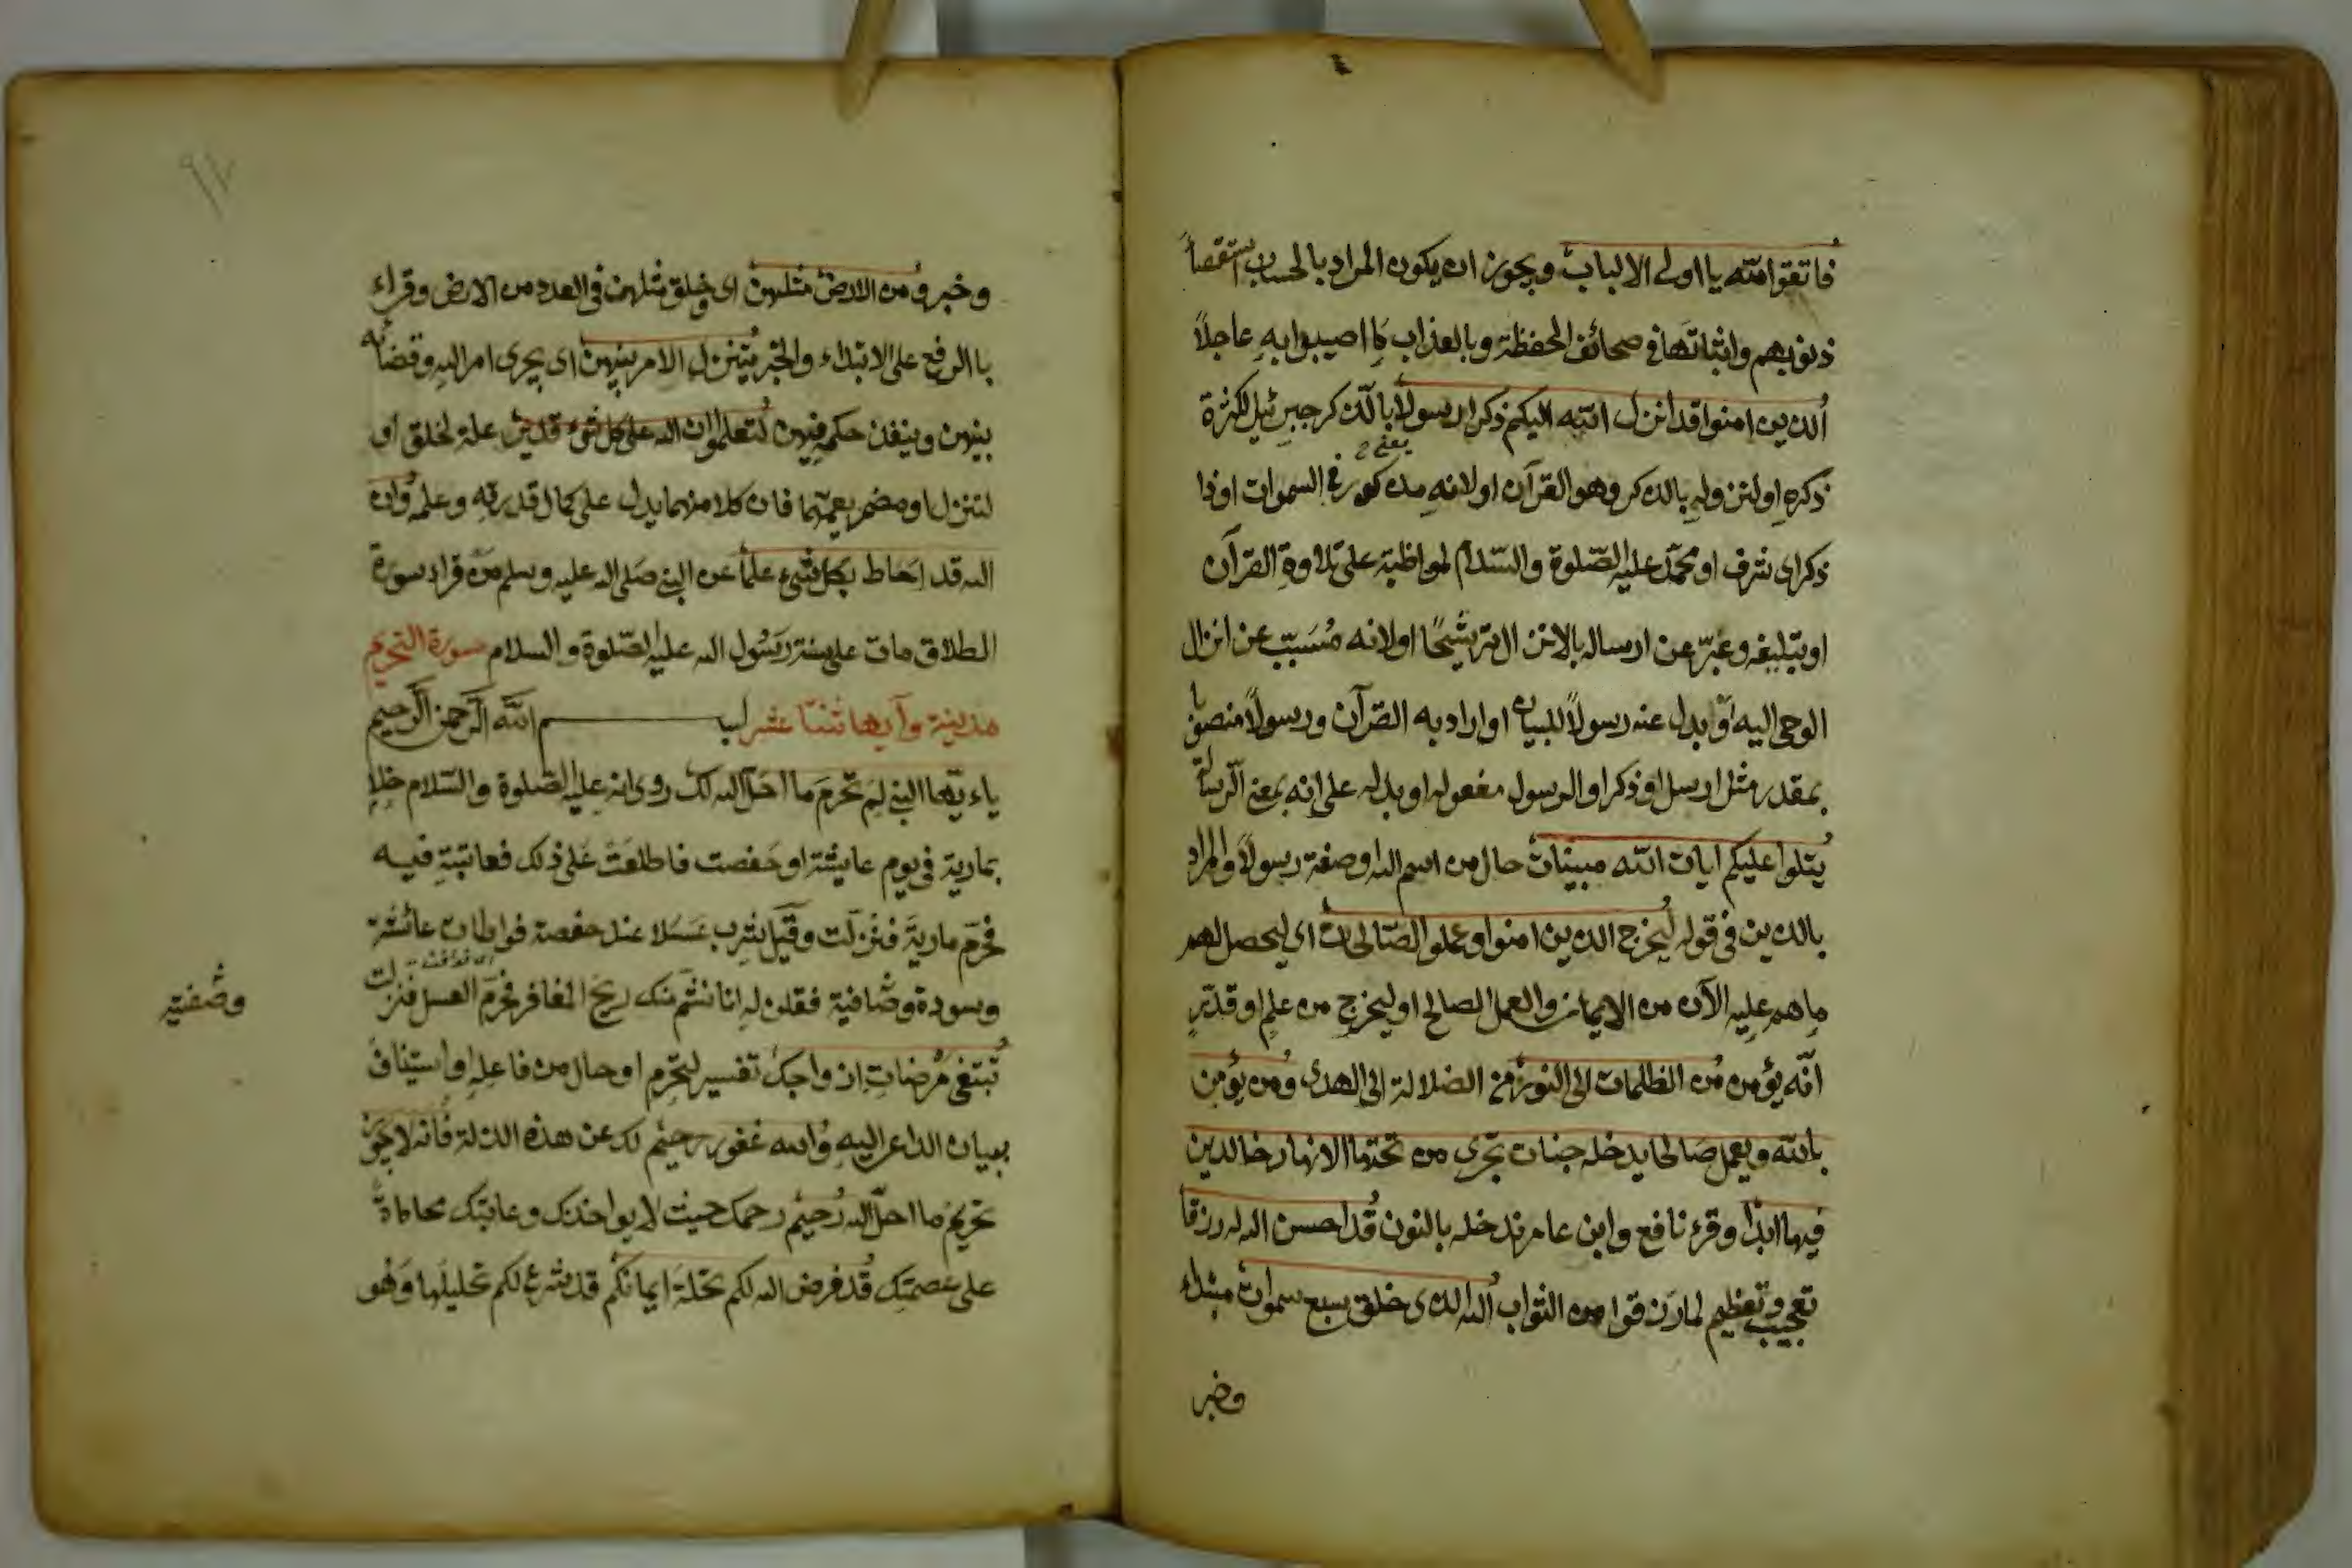 فاتقوا الله يا اولى الالباب ويجوز ان يكون المراد بالحساب استقصاأ
ذنوبهم واثباتها فى صحائف الحفظة وبالعذاب كا اصيبوا به عاجلاً
الذين امنوا قد انزل الله اليكم ذكرا رسولا بالذكر جبرئيل لكثرة
ذكره او لتنزوله بالذكر وهو القرآن او لانه مذكور فى السموات او ذا
يعنى
ذكر اى شرف او محمّد عليه الصّلوة والسّلام لمواظبة على تلاوة القرآن
او تبليغه وعبّر عن ارساله بالانزال ترشيحًا او لانه مُسَبّب عن انزال
الوحى اليه او بدل عنه رسولاً للبيان او اراد به القرآن ورسولاً منصوبا
بمقدر مثل ارسل او ذكرا والرسول مفعوله او بدله على انه بمعنى الرسالة
يتلوا عليكم ايات الله مبينات حال من اسم الله او صفة رسولاً والمراد
بالذين فى قوله ليخرج الذين امنوا وعملوا الصّالحات اى ليحصل لهم
ما هم عليه الآن من الايمان والعمل الصالح او ليخرج من علم او قدّر
انّه يؤمن من الظلمات الى النور من الضلالة الى الهدى ومن يؤمن
بالله ويعمل صالحا يدخله جنات تجرى من تحتها الانهار خالدين
فيها ابدًا وقرء نافع وابن عامر ندخله بالنون قد احسن الله له رزقا
تعجيب وتعظيم لما رزقوا من الثواب الله الذى خلق سبع سموات مبتداء
وخبر
وخبر ومن الارض مثلهن اى وخلق مثلهن فى العدد من الارض وقراء
با الرفع على الابتداء والخبر يتنزل الامر بينهن اى يجرى امر الله وقضائه
بينهن وينفذ حكمه فيهن لتعلموا ان الله على كل شىء قدير علة لخلق او
لتنزل او مضمر يعمهما فان كلا منهما يدل على كمال قدرته وعلمه وان
الله قد احاط بكل شىء علماً عن النبى صلى الله عليه وسلم من قراء سورة
الطلاق مات على سنة رسُول الله عليه الصّلوة والسلام سورة التحريم
مدينة وآيها ثنتا عشر بسم الله الرحمن الرحيم
ياءيّها النبى لم تحرم ما احل الله لك روى انه عليه الصّلوة والسّلام خلا
بمارية فى يوم عايشة او حفصت فاطلعت على ذلك فعاتبته فيه
فحرّم مارية فنزلت وقيل شرب عسلا عند حفصة فواطات عائشة
وسودة وصَافية فقلن له انا نشم منك ريح المغافر فحرّم العسل فنزلت
وصُفية
تبتغى مرضات ازواجك تفسير لتحرم او حال من فاعله او استيناف
ببيان الداعى اليه والله غفور رحيم لك عن هذه الذلة فانه لا يجوز
تحريم ما احلّ الله رحيم رحمك حيث لا يواخذك وعاتبك محاماة
على عصمتك قد فرض الله لكم تحلة ايمانكم قد شرع لكم تحليلها وهو